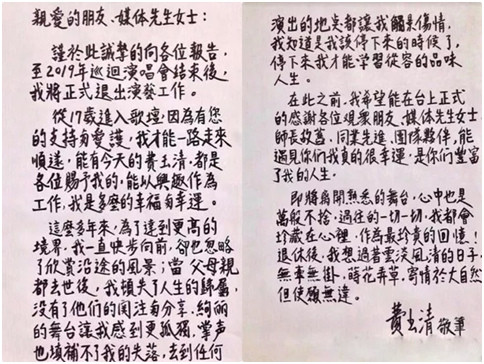 親愛的朋友、媒体先生女士：
謹於此誠摯的向各位報告，
至2019年巡迴演唱會結束後，
我將正式退出演藝工作。
從17歲進入歌壇，因為有您
的支持與愛護，我才能一路走來
順遂，能有今天的費玉清，都是
各位賜予我的，能以興趣作為
工作，我是多麼的幸福与幸運。
這麼多年來，為了達到更高的
境界，我一直快步向前，卻也忽略
了欣賞沿途的風景；當父母親
都去世後，我頓失了人生的歸屬，
没有了他們的関注与分享，絢麗
的舞台讓我感到更孤獨，掌声
也填補不了我的失落，去到任何
演出的地点都讓我觸景傷情，
我知道是我該停下來的時候了，
停下來我才能学習從容的品味
人生。
在此之前，我希望能在台上正式
的感謝各位觀眾朋友、媒体先生女士、
師長故舊、同業先進、团隊夥伴，能
遇見你們我真的很幸運，是你們豐富
了我的人生。
即將離開熟悉的舞台，心中也是
萬般不捨，過往的一切一切，我都會
珍藏在心裡，作為最珍貴的回憶！
退休後，我想過著雲淡風清的日子
無牽無掛，蒔花弄草，寄情於大自然
但使願無違。
費玉清 敬筆